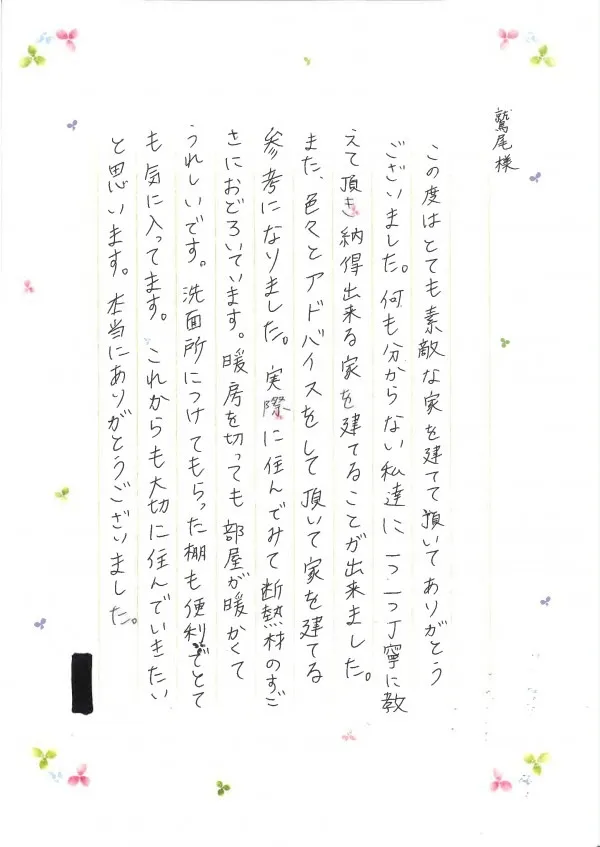 鷲尾様
この度はとても素敵な家を建てて頂いてありがとう
ございました。何も分からない私達に一つ一つ丁寧に教
えて頂き納得出来る家を建てることが出来ました。
また、色々とアドバイスをして頂いて家を建てる
参考になりました。実際に住んでみて断熱材のすご
さにおどろいています。暖房を切っても部屋が暖かくて
うれしいです。洗面所につけてもらった棚も便利でとて
も気に入ってます。これからも大切に住んでいきたい
と思います。本当にありがとうございました。